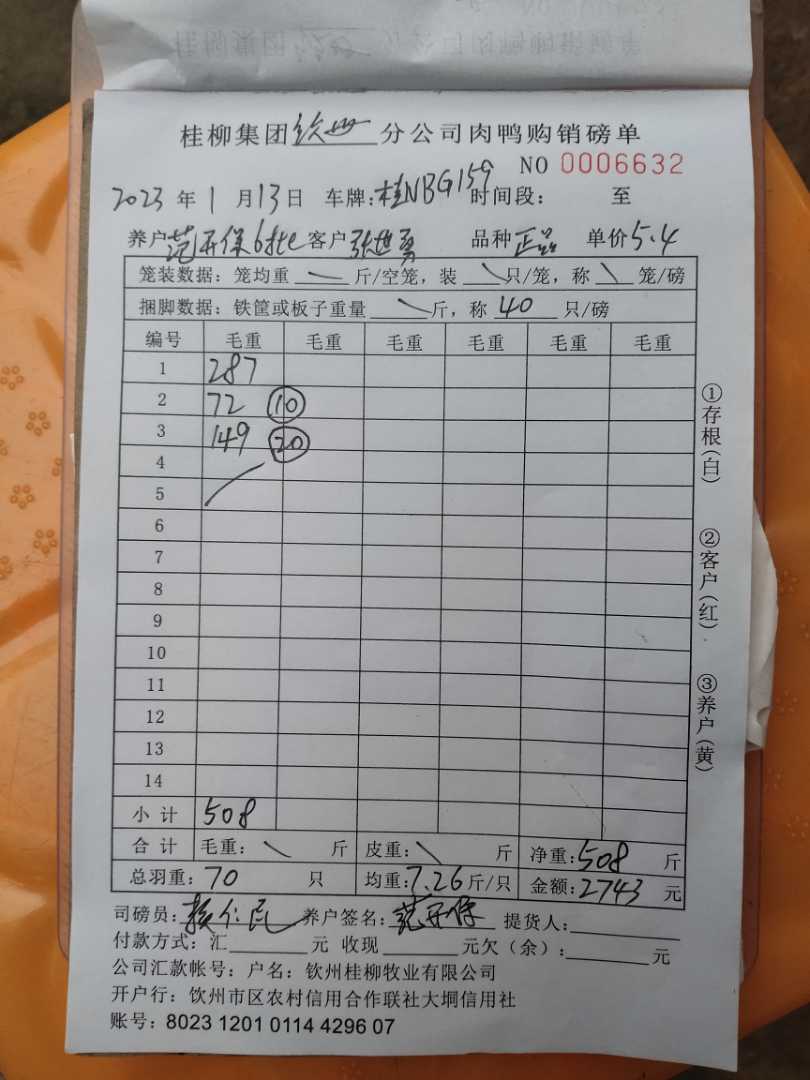 桂柳集团钦州分公司肉鸭购销磅单
NO 0006632
2023 年 1 月 13 日 车牌:桂NBG159 时间段: 至
养户范开保6批 客户张世勇 品种正品 单价5.4
笼装数据:笼均重 斤/空笼,装 只/笼,称 笼/磅
捆脚数据:铁筐或板子重量 斤,称 40 只/磅
编号 毛重 毛重 毛重 毛重 毛重 毛重
1 287
2 72 10
3 149 20
4
5
6
7
8
9
10
11
12
13
14
小计 508
合计 毛重: 斤 皮重: 斤 净重:508 斤
总羽重:70 只 均重:7.26斤/只 金额:2743 元
司磅员: 养户签名:范开保 提货人:
付款方式:汇 元 收现 元欠(余): 元
公司汇款帐号:户名:钦州桂柳牧业有限公司
开户行:饮州市区农村信用合作联社大垌信用社
账号:8023 1201 0114 4296 07
①存根(白)
②客户(红)
③养户(黄)